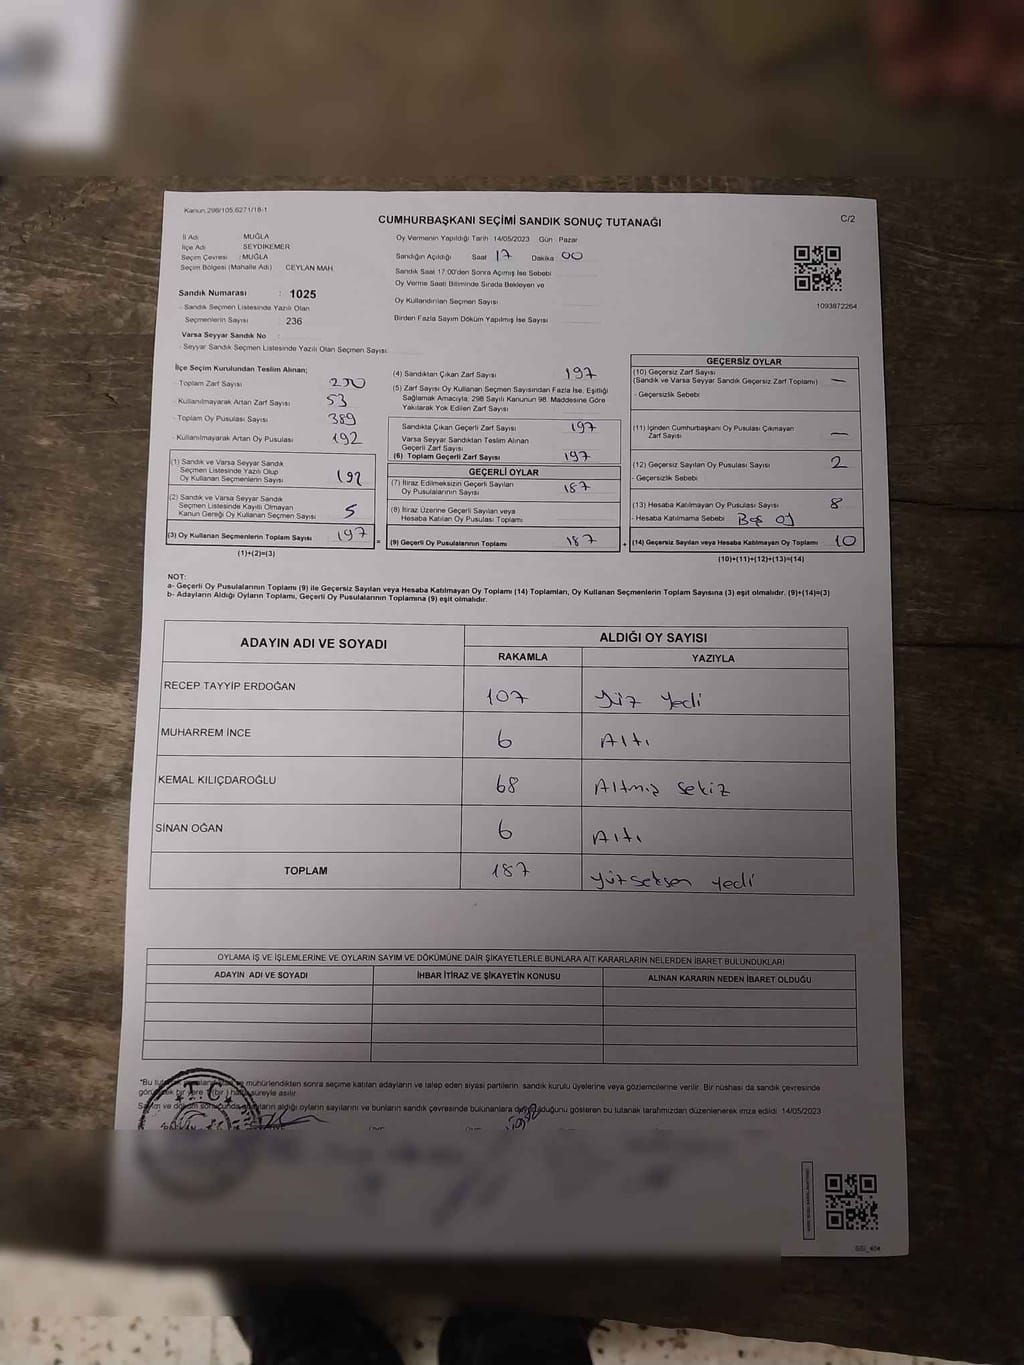 Kanun 298/105,6271/18-1
CUMHURBAŞKANI SEÇİMİ SANDIK SONUÇ TUTANAĞI
C/2
İl Adı MUĞLA
İlçe Adı SEYDİKEMER
Seçim Çevresi : MUĞLA
Seçim Bölgesi (Mahalle Adı) CEYLAN MAH
Sandık Numarası : 1025
- Sandık Seçmen Listesinde Yazılı Olan
Seçmenlerin Sayısı : 236
Varsa Seyyar Sandık No
- Seyyar Sandık Seçmen Listesinde Yazılı Olan Seçmen Sayısı
Oy Vermenin Yapıldığı Tarih 14/05/2023 Gün Pazar
Sandığın Açıldığı Saat 17 Dakika 00
Sandık Saat 17:00'den Sonra Açımış İse Sebebi
Oy Verme Saati Bitiminde Sırada Bekleyen ve
Oy Kullandırılan Seçmen Sayısı
Birden Fazla Sayım Döküm Yapılmış İse Sayısı
1093872264
İlçe Seçim Kurulundan Teslim Alınan;
- Toplam Zarf Sayısı 250
- Kullanılmayarak Artan Zarf Sayısı 53
- Toplam Oy Pusulası Sayısı 389
- Kullanılmayarak Artan Oy Pusulası 192
(1) Sandık ve Varsa Seyyar Sandık
Seçmen Listesinde Yazılı Olup
Oy Kullanan Seçmenlerin Sayısı 192
(2) Sandık ve Varsa Seyyar Sandık
Seçmen Listesinde Kayıtlı Olmayan
Kanun Gereği Oy Kullanan Seçmen Sayısı 5
(3) Oy Kullanan Seçmenlerin Toplam Sayısı 197 =
(1)+(2)=(3)
(4) Sandıktan Çıkan Zarf Sayısı 197
(5) Zarf Sayısı Oy Kullanan Seçmen Sayısından Fazla İse, Eşitliği
Sağlamak Amacıyla; 298 Sayılı Kanunun 98. Maddesine Göre
Yakılarak Yok Edilen Zarf Sayısı
Sandıkta Çıkan Geçerli Zarf Sayısı 197
Varsa Seyyar Sandıktan Teslim Alınan
Geçerli Zarf Sayısı
(6) Toplam Geçerli Zarf Sayısı 197
GEÇERLİ OYLAR
(7) İtiraz Edilmeksizin Geçerli Sayılan
Oy Pusulalarının Sayısı 187
(8) İtiraz Üzerine Geçerli Sayılan veya
Hesaba Katılan Oy Pusulası Toplamı
(9) Geçerli Oy Pusulalarının Toplamı 187 +
GEÇERSİZ OYLAR
(10) Geçersiz Zarf Sayısı
(Sandık ve Varsa Seyyar Sandık Geçersiz Zarf Toplamı) —
- Geçersizlik Sebebi
(11) İçinden Cumhurbaşkanı Oy Pusulası Çıkmayan
Zarf Sayısı —
(12) Geçersiz Sayılan Oy Pusulası Sayısı 2
- Geçersizlik Sebebi
(13) Hesaba Katılmayan Oy Pusulası Sayısı 8
- Hesaba Katılmama Sebebi Boş oy
(14) Geçersiz Sayılan veya Hesaba Katılmayan Oy Toplamı 10
(10)+(11)+(12)+(13)=(14)
NOT:
a- Geçerli Oy Pusulalarının Toplamı (9) ile Geçersiz Sayılan veya Hesaba Katılmayan Oy Toplamı (14) Toplamları, Oy Kullanan Seçmenlerin Toplam Sayısına (3) eşit olmalıdır. (9)+(14)=(3)
b- Adayların Aldığı Oyların Toplamı, Geçerli Oy Pusulalarının Toplamına (9) eşit olmalıdır.
ADAYIN ADI VE SOYADI
ALDIĞI OY SAYISI
RAKAMLA YAZIYLA
RECEP TAYYİP ERDOĞAN 107 Yüz Yedi
MUHARREM İNCE 6 Altı
KEMAL KILIÇDAROĞLU 68 Altmış sekiz
SİNAN OĞAN 6 Altı
TOPLAM 187 Yüzseksen yedi
OYLAMA İŞ VE İŞLEMLERİNE VE OYLARIN SAYIM VE DÖKÜMÜNE DAİR ŞİKAYETLERLE BUNLARA AİT KARARLARIN NELERDEN İBARET BULUNDUKLARI
ADAYIN ADI VE SOYADI İHBAR İTİRAZ VE ŞİKAYETİN KONUSU ALINAN KARARIN NEDEN İBARET OLDUĞU
*Bu mühürlendikten sonra seçime katılan adayların ve talep eden siyasi partilerin sandık kurulu üyelerine veya gözlemcilerine verilir. Bir nüshası da sandık çevresinde
süreyle asılır
Sayım ve döküm sonucunda aldığı oyların sayılarını ve bunların sandık çevresinde bulunanlara gösteren bu tutanak tarafımızdan düzenlenerek imza edildi 14/05/2023
T.C.